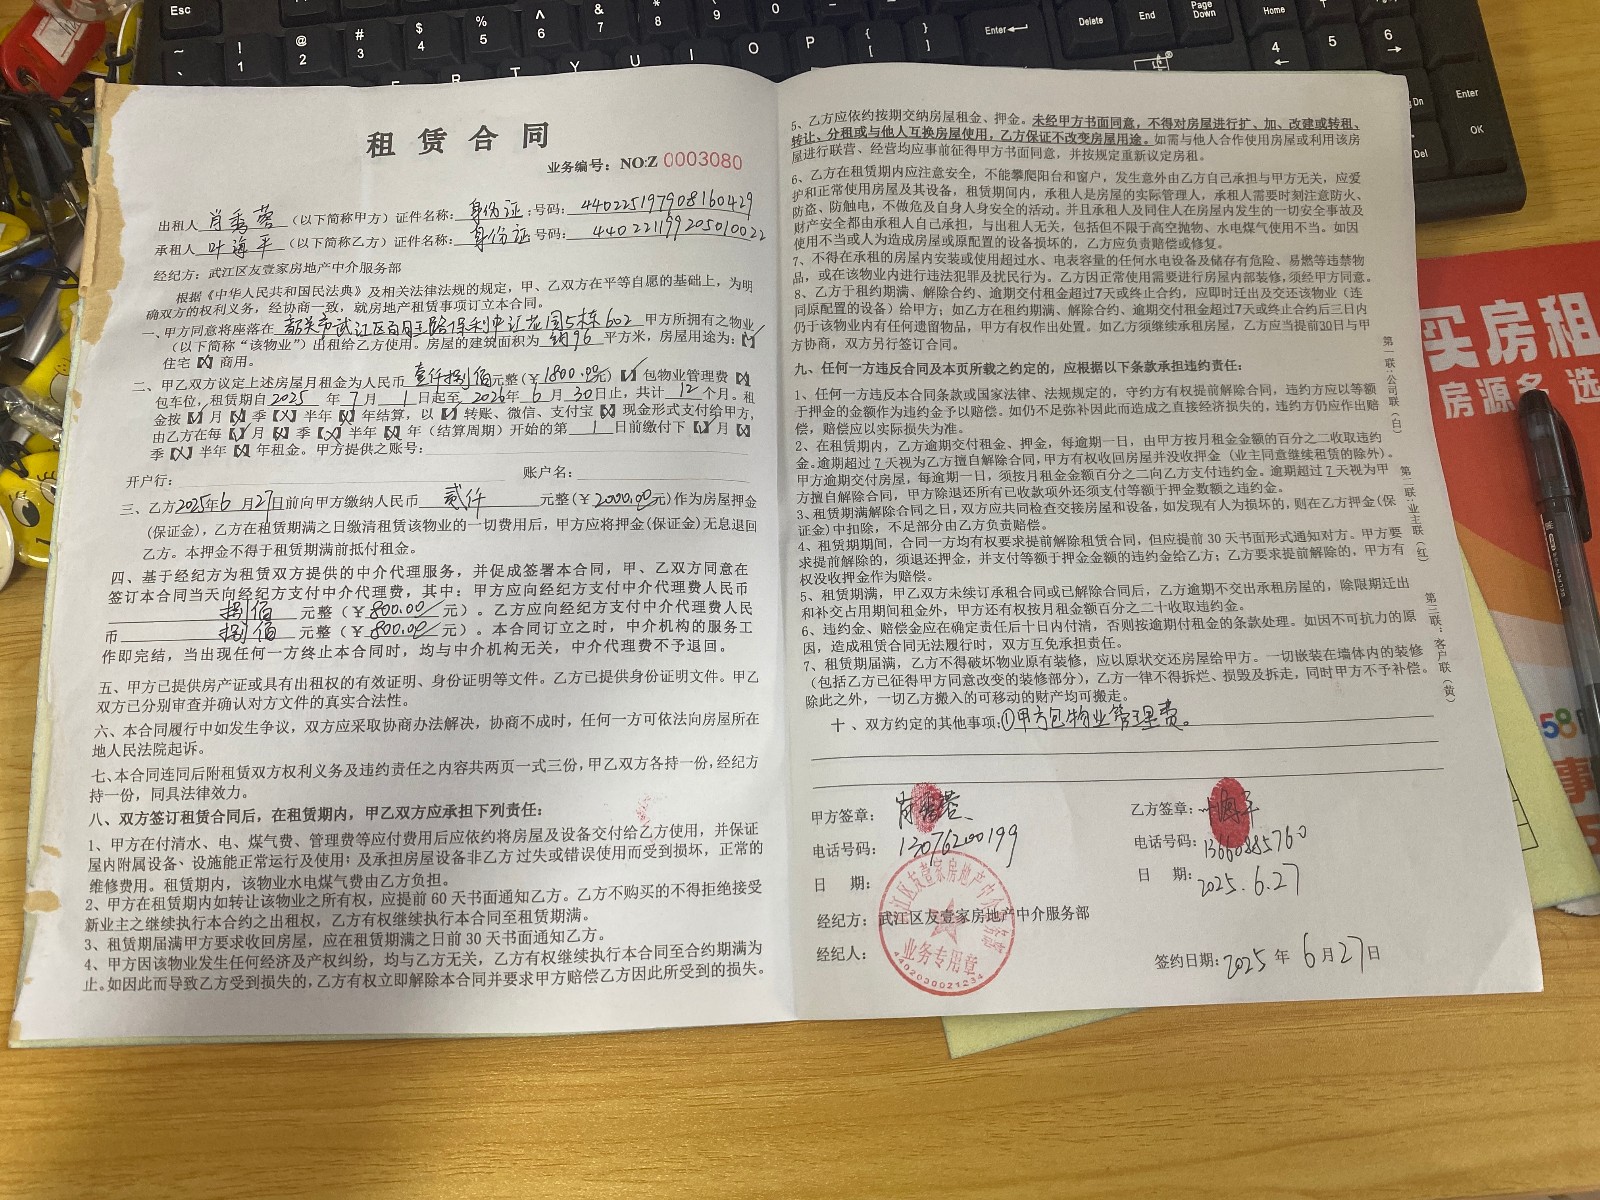 租赁合同
业务编号：NO:Z 0003080
出租人 肖秀蓉 （以下简称甲方）证件名称：身份证：号码：440225197908160429
承租人 叶海平 （以下简称乙方）证件名称：身份证 号码：440221199205010022
经纪方：武江区友壹家房地产中介服务部
根据《中华人民共和国民法典》及相关法律法规的规定，甲、乙双方在平等自愿的基础上，为明
确双方的权利义务，经协商一致，就房地产租赁事项订立本合同。
一、甲方同意将座落在 韶关市武江区百旺路保利中汇花园5栋602 甲方所拥有之物业
（以下简称“该物业”）出租给乙方使用。房屋的建筑面积为 约96 平方米，房屋用途为：【✓】
住宅【X】商用。
二、甲乙双方议定上述房屋月租金为人民币 壹仟捌佰元整（￥1800.00元）【✓】包物业管理费【X】
包车位，租赁期自2025 年 7 月 1 日起至 2026年 6 月 30日止，共计 12 个月。租
金按【✓】月【X】季【X】半年【X】年结算，以【✓】转账、微信、支付宝【X】现金形式支付给甲方，
由乙方在每【✓】月【X】季【X】半年【X】年（结算周期）开始的第 1 日前缴付下【✓】月【X】
季【X】半年【X】年租金。甲方提供之账号：
开户行： 账户名：
三、乙方2025年6 月27日前向甲方缴纳人民币 贰仟 元整（￥2000.00元）作为房屋押金
（保证金），乙方在租赁期满之日缴清租赁该物业的一切费用后，甲方应将押金（保证金）无息退回
乙方。本押金不得于租赁期满前抵付租金。
四、基于经纪方为租赁双方提供的中介代理服务，并促成签署本合同，甲、乙双方同意在
签订本合同当天向经纪方支付中介代理费，其中：甲方应向经纪方支付中介代理费人民币
捌佰 元整（￥800.00 元）。乙方应向经纪方支付中介代理费人民
币 捌佰 元整（￥800.00 元）。本合同订立之时，中介机构的服务工
作即完结，当出现任何一方终止本合同时，均与中介机构无关，中介代理费不予退回。
五、甲方已提供房产证或具有出租权的有效证明、身份证明等文件。乙方已提供身份证明文件。甲乙
双方已分别审查并确认对方文件的真实合法性。
六、本合同履行中如发生争议，双方应采取协商办法解决，协商不成时，任何一方可依法向房屋所在
地人民法院起诉。
七、本合同连同后附租赁双方权利义务及违约责任之内容共两页一式三份，甲乙双方各持一份，经纪方
持一份，同具法律效力。
八、双方签订租赁合同后，在租赁期内，甲乙双方应承担下列责任：
1、甲方在付清水、电、煤气费、管理费等应付费用后应依约将房屋及设备交付给乙方使用，并保证
屋内附属设备、设施能正常运行及使用；及承担房屋设备非乙方过失或错误使用而受到损坏，正常的
维修费用。租赁期内，该物业水电煤气费由乙方负担。
2、甲方在租赁期内如转让该物业之所有权，应提前 60 天书面通知乙方。乙方不购买的不得拒绝接受
新业主之继续执行本合约之出租权，乙方有权继续执行本合同至租赁期满。
3、租赁期届满甲方要求收回房屋，应在租赁期满之日前 30 天书面通知乙方。
4、甲方因该物业发生任何经济及产权纠纷，均与乙方无关，乙方有权继续执行本合同至合约期满为
止。如因此而导致乙方受到损失的，乙方有权立即解除本合同并要求甲方赔偿乙方因此所受到的损失。
5、乙方应依约按期交纳房屋租金、押金。未经甲方书面同意，不得对房屋进行扩、加、改建或转租、
转让、分租或与他人互换房屋使用，乙方保证不改变房屋用途。如需与他人合作使用房屋或利用该房
屋进行联营、经营均应事前征得甲方书面同意，并按规定重新议定房租。
6、乙方在租赁期内应注意安全，不能攀爬阳台和窗户，发生意外由乙方自己承担与甲方无关，应爱
护和正常使用房屋及其设备，租赁期间内，承租人是房屋的实际管理人，承租人需要时刻注意防火、
防盗、防触电，不做危及自身人身安全的活动。并且承租人及同住人在房屋内发生的一切安全事故及
财产安全都由承租人自己承担，与出租人无关，包括但不限于高空抛物、水电煤气使用不当。如因
使用不当或人为造成房屋或原配置的设备损坏的，乙方应负责赔偿或修复。
7、不得在承租的房屋内安装或使用超过水、电表容量的任何水电设备及储存有危险、易燃等违禁物
品，或在该物业内进行违法犯罪及扰民行为。乙方因正常使用需要进行房屋内部装修，须经甲方同意。
8、乙方于租约期满、解除合约、逾期交付租金超过7天或终止合约，应即时迁出及交还该物业（连
同原配置的设备）给甲方；如乙方在租约期满、解除合约、逾期交付租金超过7天或终止合约后三日内
仍于该物业内有任何遗留物品，甲方有权作出处置。如乙方须继续承租房屋，乙方应当提前30日与甲
方协商，双方另行签订合同。
九、任何一方违反合同及本页所载之约定的，应根据以下条款承担违约责任：
1、任何一方违反本合同条款或国家法律、法规规定的，守约方有权提前解除合同，违约方应以等额
于押金的金额作为违约金予以赔偿。如仍不足弥补因此而造成之直接经济损失的，违约方仍应作出赔
偿，赔偿应以实际损失为准。
2、在租赁期内，乙方逾期交付租金、押金，每逾期一日，由甲方按月租金金额的百分之二收取违约
金。逾期超过 7 天视为乙方擅自解除合同，甲方有权收回房屋并没收押金（业主同意继续租赁的除外）。
甲方逾期交付房屋，每逾期一日，须按月租金金额百分之二向乙方支付违约金。逾期超过 7 天视为甲
方擅自解除合同，甲方除退还所有已收款项外还须支付等额于押金数额之违约金。
3、租赁期满解除合同之日，双方应共同检查交接房屋和设备，如发现有人为损坏的，则在乙方押金（保
证金）中扣除，不足部分由乙方负责赔偿。
4、租赁期期间，合同一方均有权要求提前解除租赁合同，但应提前 30 天书面形式通知对方。甲方要
求提前解除的，须退还押金，并支付等额于押金金额的违约金给乙方；乙方要求提前解除的，甲方有
权没收押金作为赔偿。
5、租赁期满，甲乙双方未续订承租合同或已解除合同后，乙方逾期不交出承租房屋的，除限期迁出
和补交占用期间租金外，甲方还有权按月租金额百分之二十收取违约金。
6、违约金、赔偿金应在确定责任后十日内付清，否则按逾期付租金的条款处理。如因不可抗力的原
因，造成租赁合同无法履行时，双方互免承担责任。
7、租赁期届满，乙方不得破坏物业原有装修，应以原状交还房屋给甲方。一切嵌装在墙体内的装修
（包括乙方已征得甲方同意改变的装修部分），乙方一律不得拆烂、损毁及拆走，同时甲方不予补偿。
除此之外，一切乙方搬入的可移动的财产均可搬走。
十、双方约定的其他事项：①甲方包物业管理费。
甲方签章：肖秀蓉
电话号码：13076200199
日 期：
乙方签章：叶海平
电话号码：13660885760
日 期：2025.6.27
经纪方：武江区友壹家房地产中介服务部
经纪人：
签约日期：2025 年 6 月 27 日
武江区友壹家房地产中介服务部
业务专用章
4402030021234
第一联：公司联（白）
第二联：业主联（红）
第三联：客户联（黄）
买房租
房源多 选
58
事